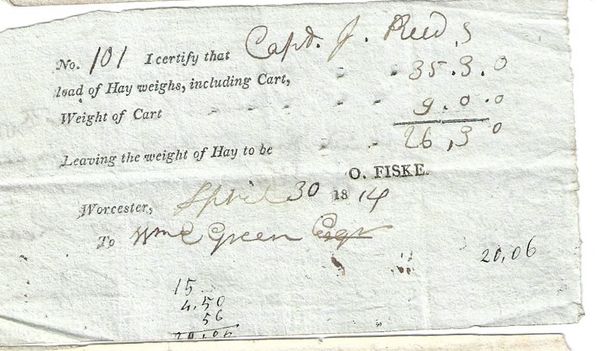 No. 101 I certify that Capt. J. Reed,s
load of Hay weighs, including Cart, - - - 35.3.0
Weight of Cart - - - 9.0.0
Leaving the weight of Hay to be 26,3 0
O. FISKE.
Worcester, April 30 1814
To Wm E Green Esqr
20,06
15
4.50
56
20.06